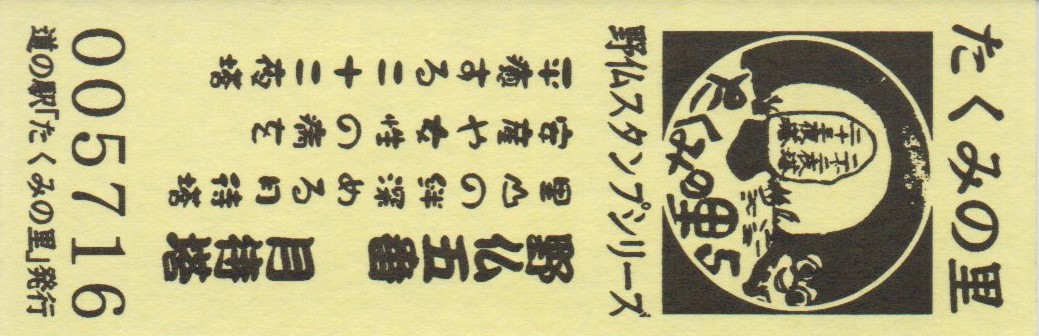 たくみの里
たくみの里5
二十三夜塔
二十二夜塔
野仏スタンプシリーズ
野仏五番 月待塔
里山の絆深める月待塔
安産や女性の病を
平癒する二十二夜塔
005716
道の駅「たくみの里」発行